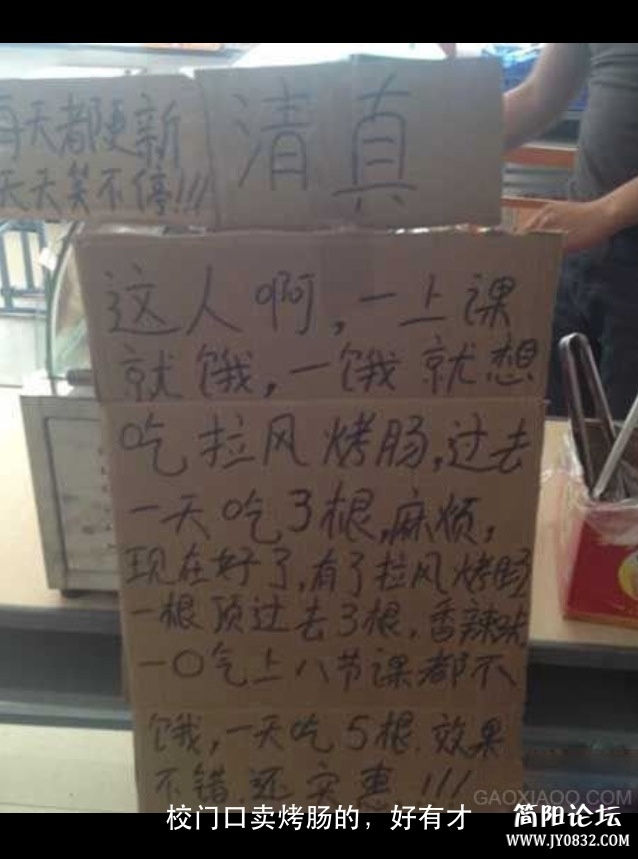 每天都更新
天天笑不停!!!
清真
这人啊,一上课
就饿,一饿就想
吃拉风烤肠,过去
一天吃3根,麻烦,
现在好了,有了拉风烤肠
一根顶过去3根,香辣味
一〇气上八节课都不
饿,一天吃5根.效果
不错,还实惠!!!
GAOXIAOO.COM
校门口卖烤肠的，好有才
简阳论坛
www.JY0832.com